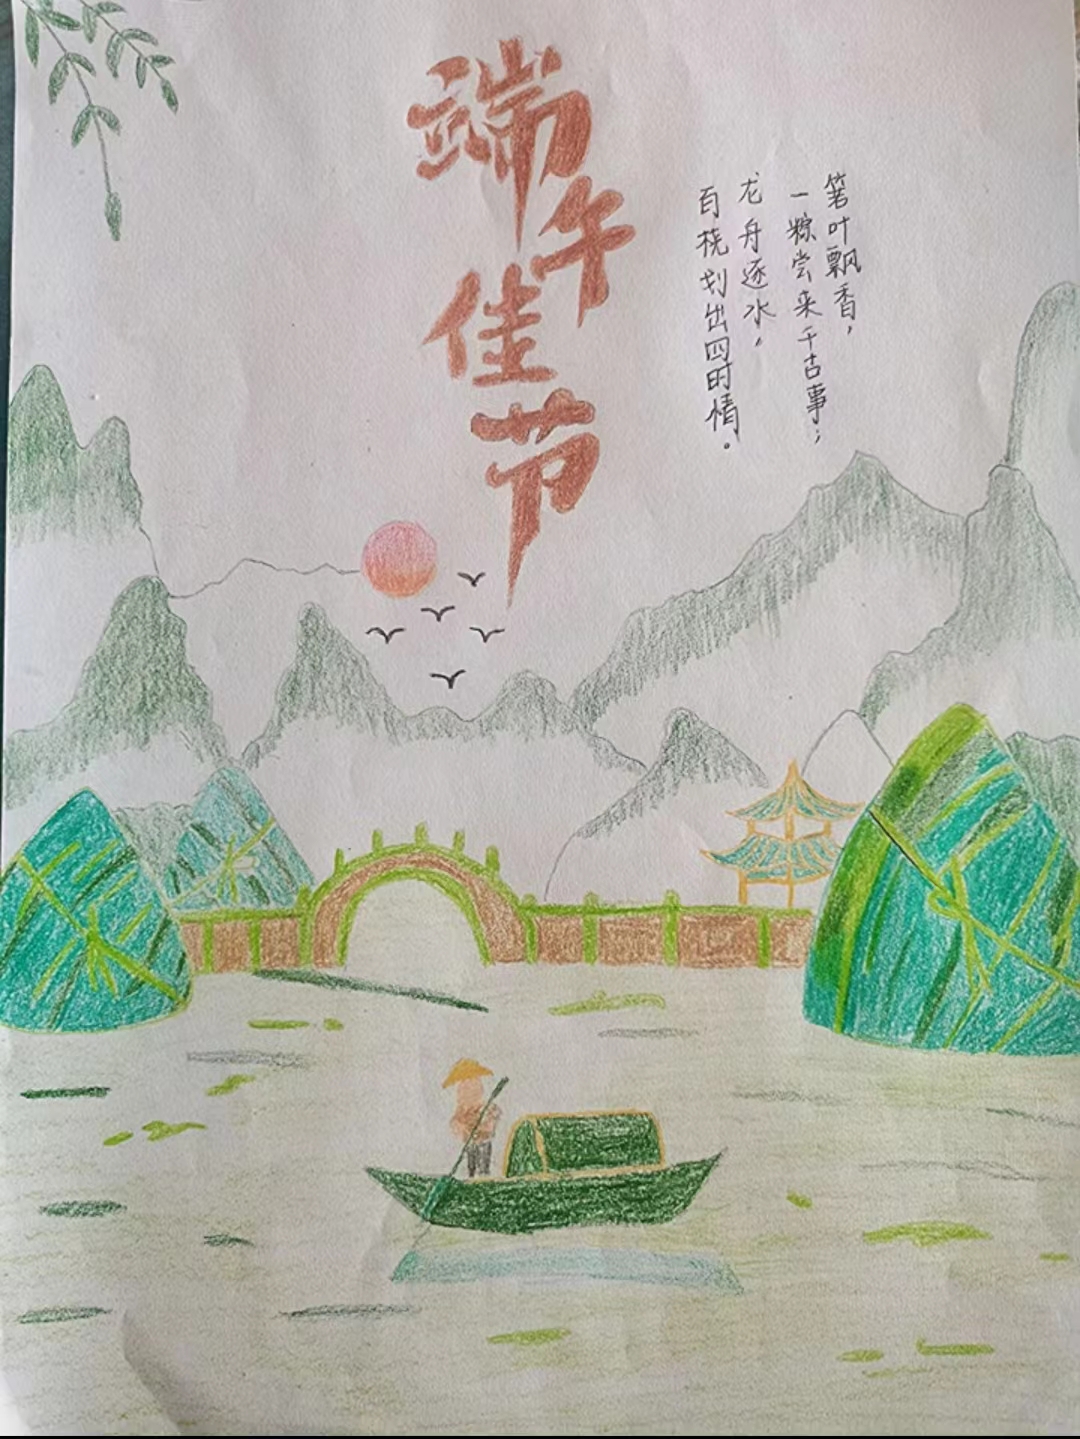 端午佳节
箬叶飘香，
一粽尝来千古事；
龙舟逐水，
百桡划出四时情。